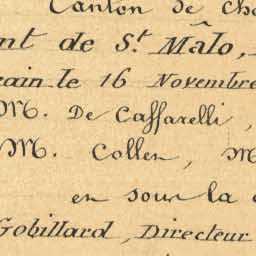 Canton de Cha
nt de S.t Mãlo,
cain le 16 Novembre
M. De Caffarelli,
M. Collen, M
en sour la
Gobillard, Directeur